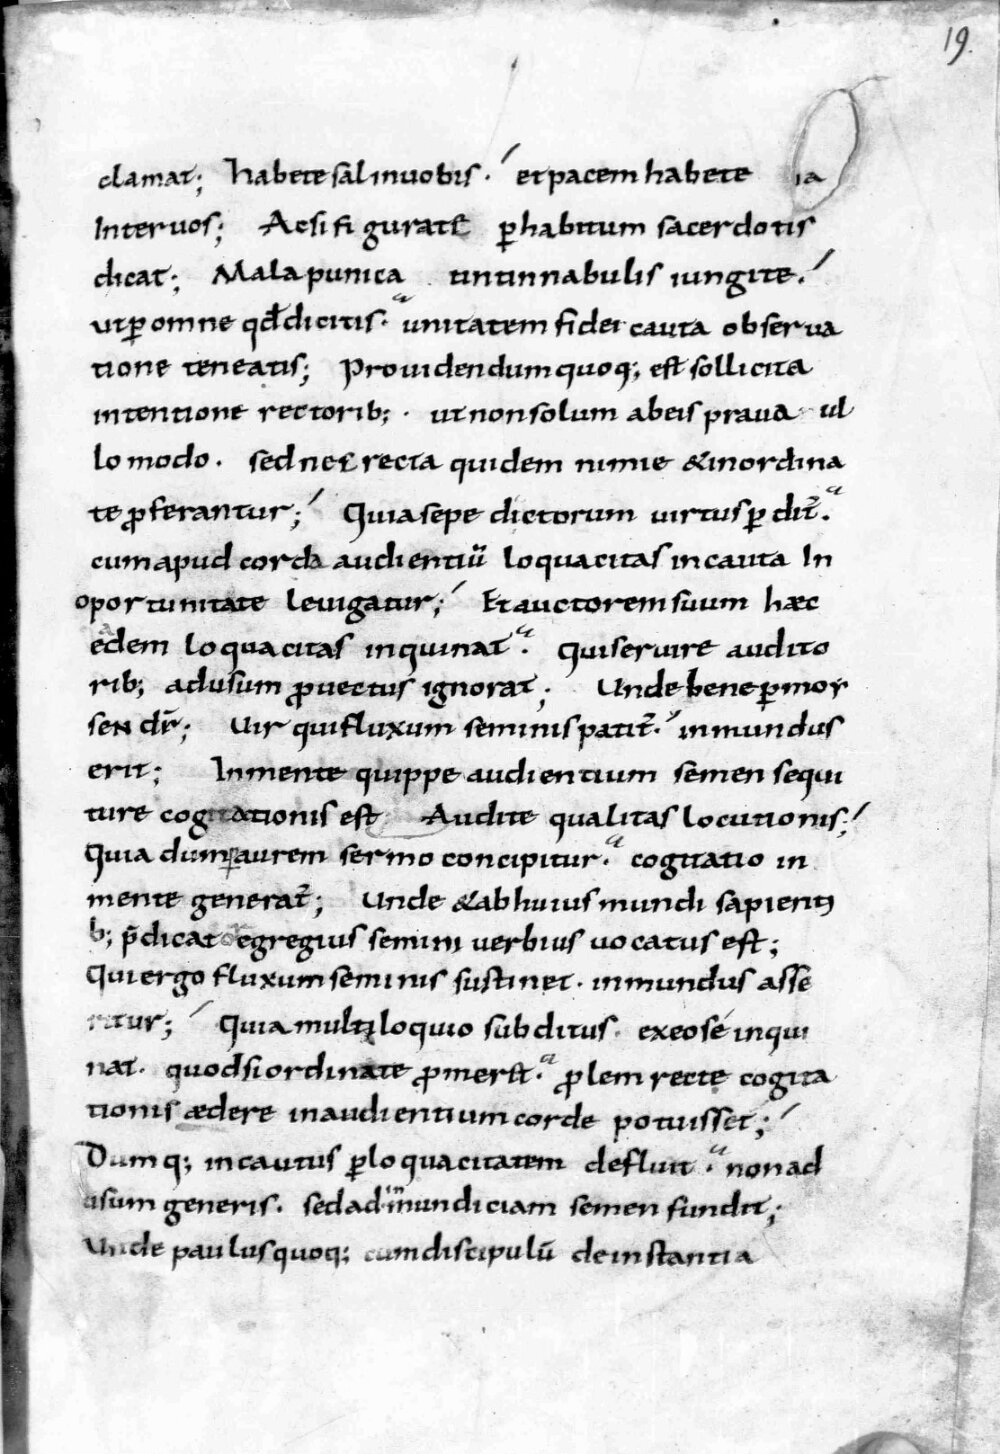 19.
clamat; habete sal in uobis. et pacem habete
Inter uos; Ac si figurate ꝑ habitum sacerdotis
dicat; Mala punica tintinnabulis iungite.
ut ꝑ omne qđ dicitis. unitatem fidei cauta obserua
tione teneatis; Prouidendum quoq; est sollicita
intentione rectorib;. ut non solum ab eis praua ul
lo modo. sed nec recta quidem nimie & inordina
te ꝓferantur; Quia sepe dictorum uirtus ꝑdit̃.
cum apud corda audientiū loquacitas incauta In
oportunitate leuigatur; Et auctorem suum hæc
eadem loquacitas inquinat. Qui seruire audito
rib; ad usum ꝓuectus ignorat; Unde bene ꝑ moy
sen dr̃; Uir qui fluxum seminis patit̃. inmundus
erit; In mente quippe audientium semen sequi
ture cogitationis est Audite qualitas locutionis;
Quia dum ꝑ aurem sermo concipitur. cogitatio in
mente generat̃; Unde & ab huius mundi sapienti
b; p̃dicator egregius semini uerbius uocatus est;
Qui ergo fluxum seminis sustinet. inmundus asse
ritur; Quia multiloquio subditus. ex eo se inqui
nat. quod si ordinate ꝓmeret. ꝓlem recte cogita
tionis ædere in audientium corde potuisset;
Dumq; incautus ꝑ loquacitatem defluit. non ad
usum generis. sed ad inmundiciam semen fundit;
Unde paulus quoq; cum discipulū de instantia